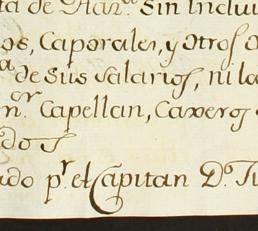 ta de Har.ª Sin Inclui
os, Caporales, y otros o
ª de sus salarios, ni la
n.cr Capellan, Caxeros
ado S
ado p.r el Capitan D.n Ju